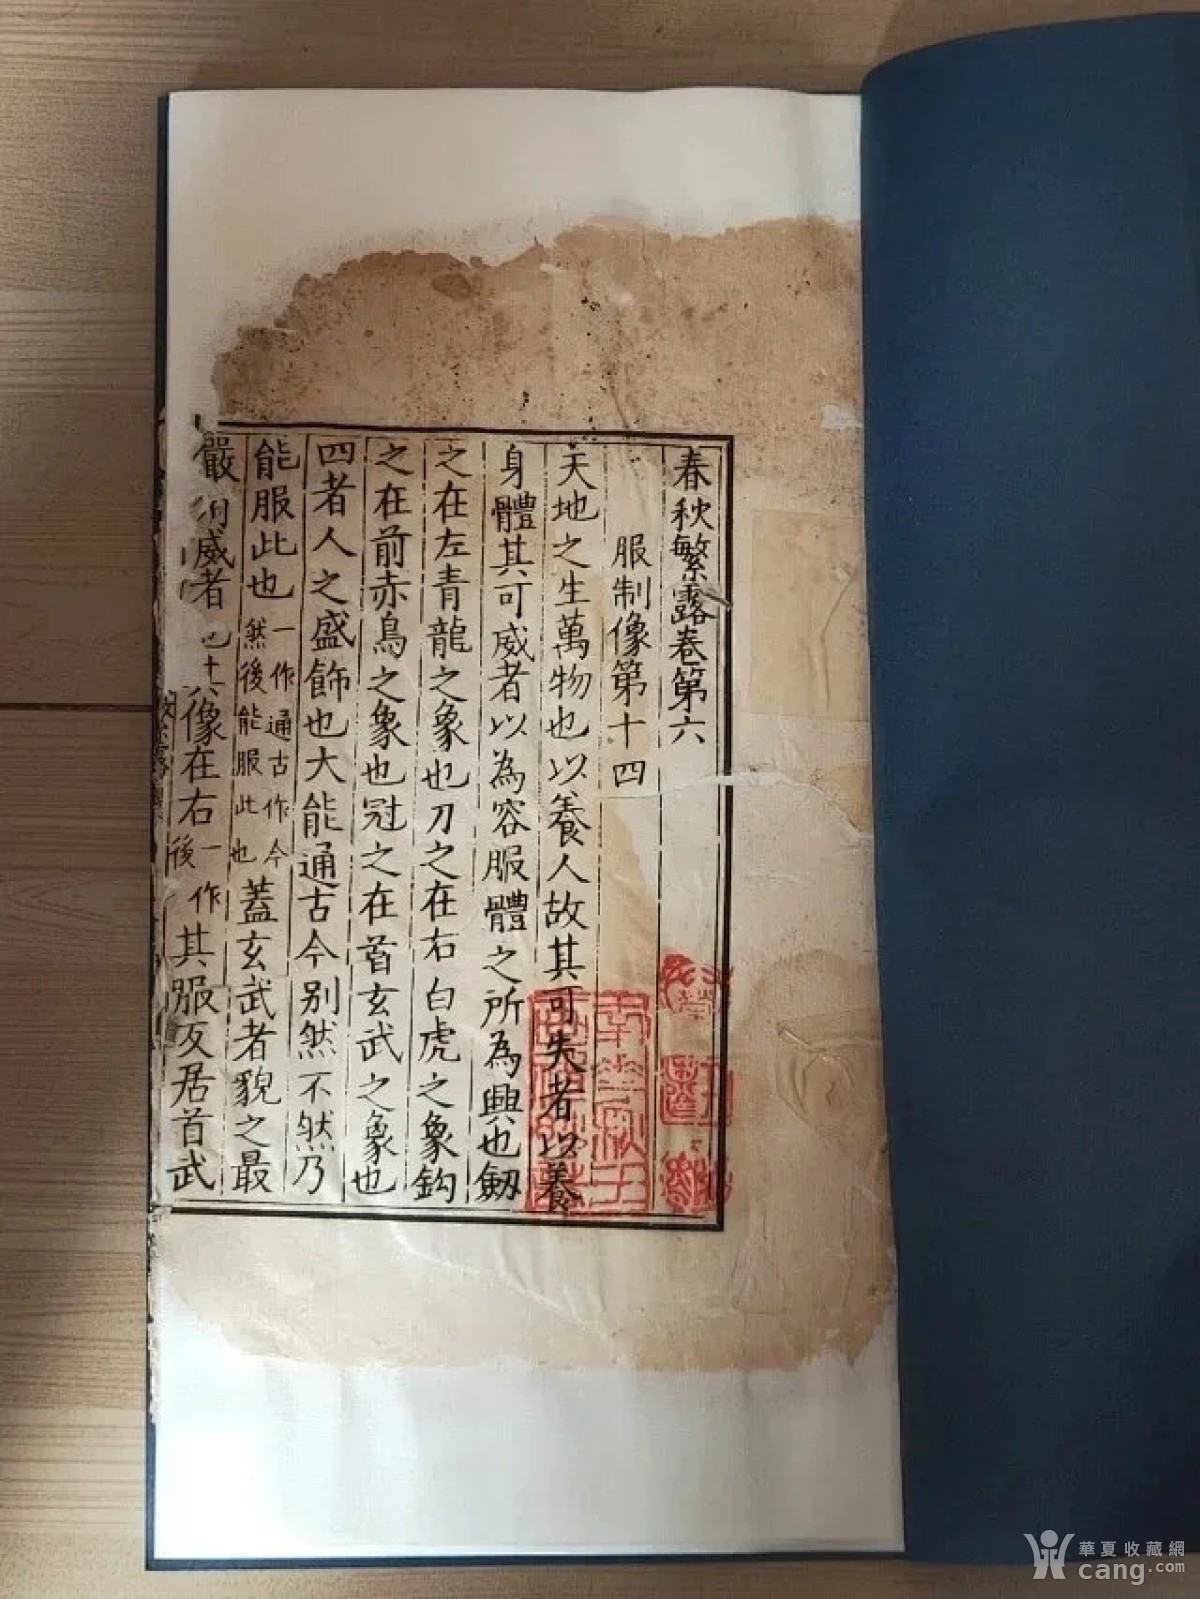 春秋繁露卷第六
服制像第十四
天地之生萬物也以養人故其可失者以養
身體其可威者以為容服體之所為興也劒
之在左青龍之象也刀之在右白虎之象鈎
之在前赤鳥之象也冠之在首玄武之象也
四者人之盛飾也大能通古今別然不然乃
能服此也一作通古作今然後能服此也蓋玄武者貌之最
嚴威者也像在右一作後其服反居首武
華夏收藏網
cang.com